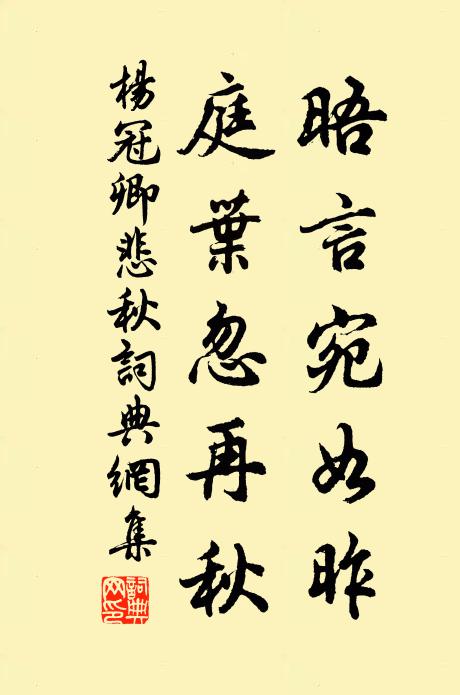 晤言宛如昨
庭葉忽再秋
楊冠卿悲秋詞典網集
詞典网印